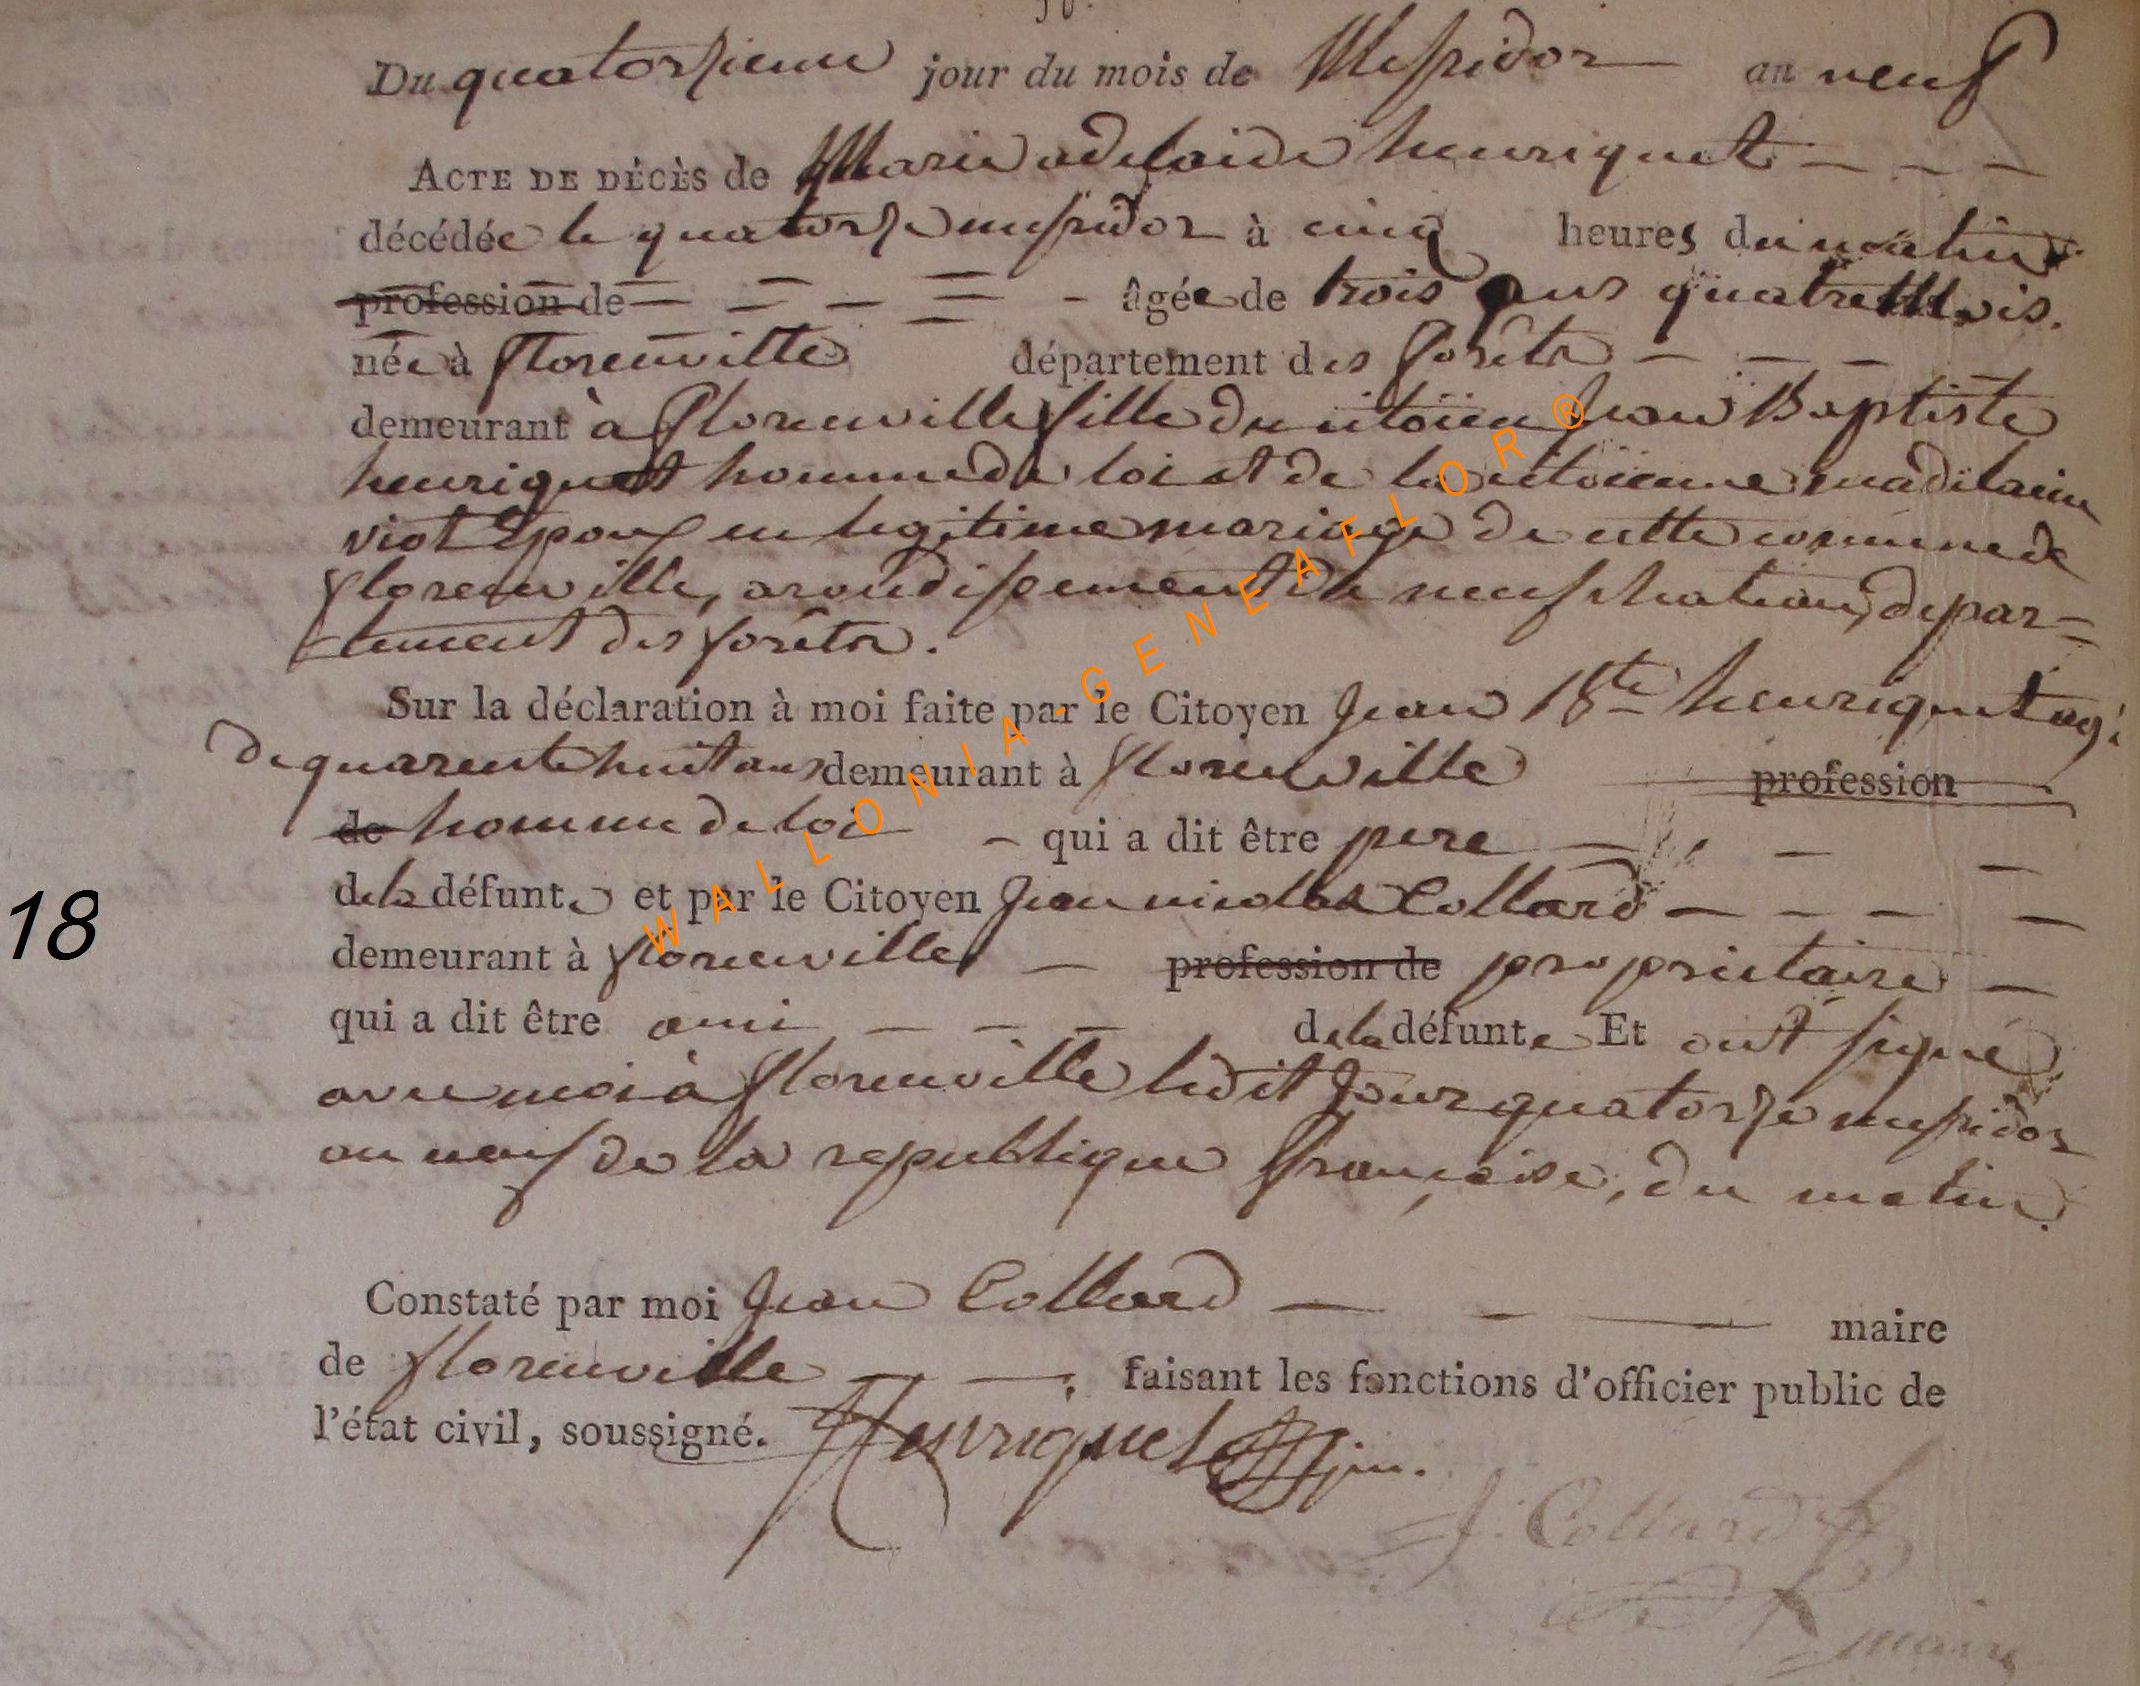 Du quatorzieme jour du mois de Messidor an neuf
ACTE DE DÉCÈS de Marie adelaide henriquet
décédée le quatorze messidor à cinq heures du matin
profession de âgée de trois ans quatre Mois.
née à florenville département des forêts
demeurant à florenville fille du citoïen Jean Baptiste
henriquet homme de loi et de la citoïenne madelaine
viot Epoux en legitime mariage de cette commune de
florenville, arondissement de neufchateau, depar=
tement des forêts.
Sur la déclaration à moi faite par le Citoyen Jean Bte henriquet agé
de quarente huit ans demeurant à florenville profession
de homme de loi qui a dit être pere
de la défunte et par le Citoyen Jean nicolas Collard
demeurant à florenville profession de proprietaire
qui a dit être ami de la défunte Et ont signé
avec moi à florenville ledit Jour quatorze messidor
an neuf de la republique française, du matin.
Constaté par moi Jean Collard maire
de florenville faisant les fonctions d'officier public de
l'état civil, soussigné. Henriquet
J. Collard
maire
18
WALLONIA-GENEAFLOR®